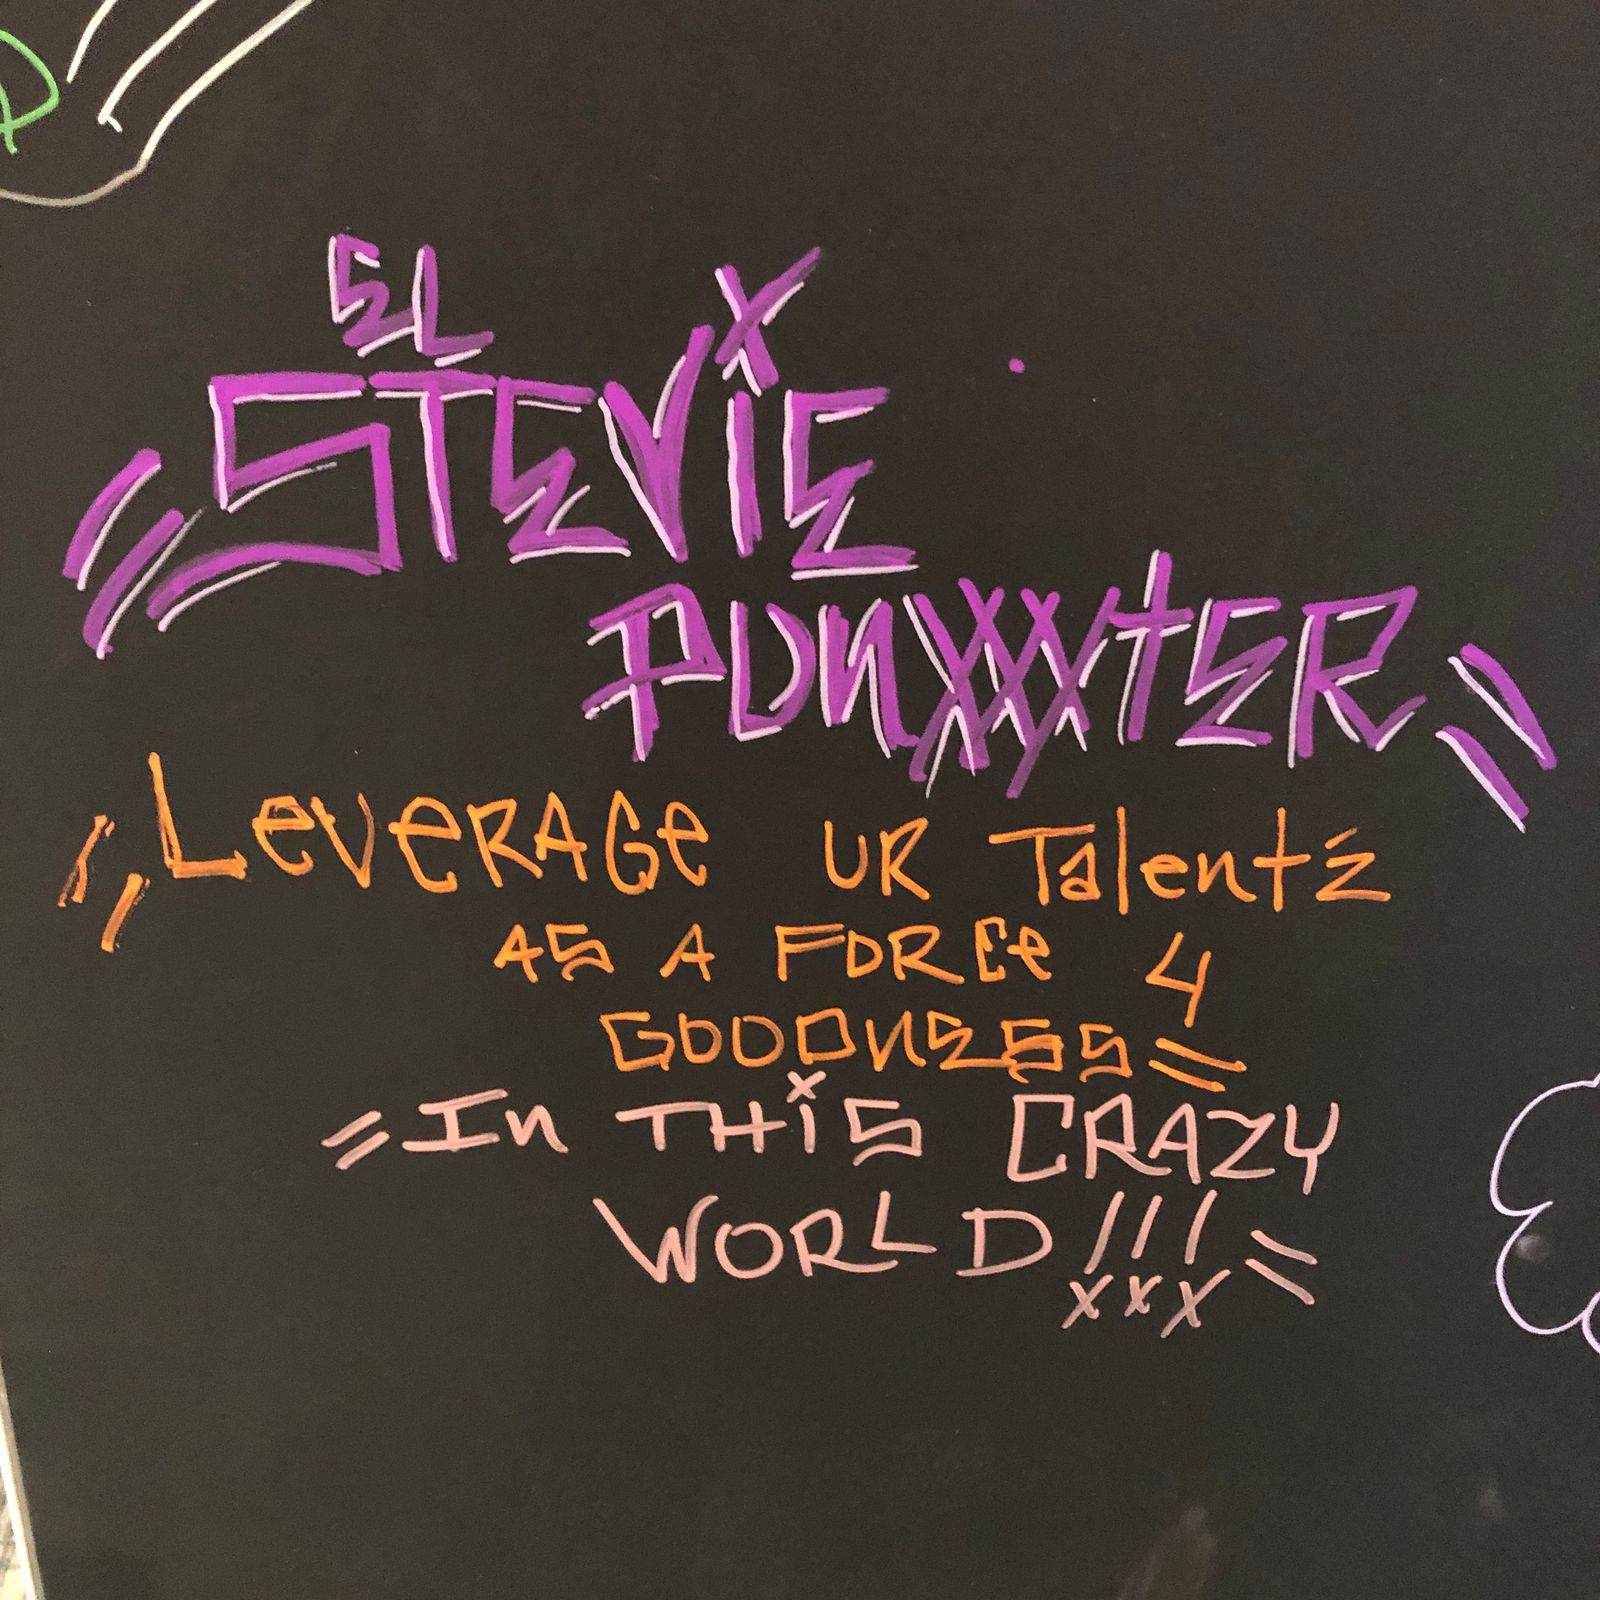 R
EL
"STEViE
PUNXXXTER"
"LeVeRAGe UR TalentZ
AS A FORCe 4
GOODNESS"
"In THiS CRAZY
WORLD!!!"